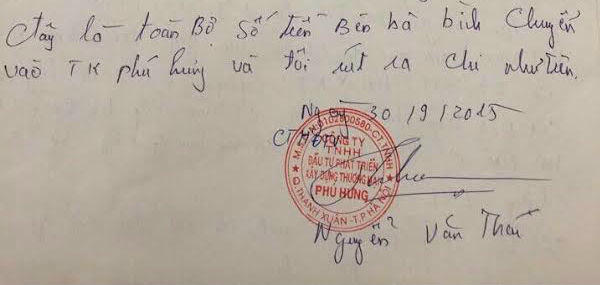 Đây là toàn Bộ số tiền Bên bà bích Chuyển
vào TK phú hưng và tôi rút ra chi như trên.
Ngày 30/9/2015
CTHĐTV
M.S.D.N:0102800580-C.T.T.N.H.H
CÔNG TY
TNHH
ĐẦU TƯ PHÁT TRIỂN
XÂY DỰNG THƯƠNG MẠI
PHÚ HƯNG
Q.THANH XUÂN-T.P HÀ NỘI
Nguyễn Văn